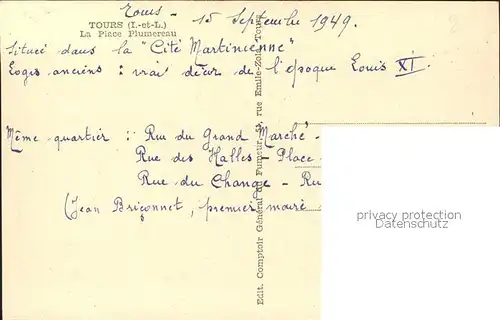 Tours - 15 Septembre 1949.
TOURS (I.-et-L.)
La Place Plumereau
Situei dans la "Cité Martinienne"
Logis anciens : vrai décor de l'époque Louis XI.
Même quartier : Rue du Grand Marché -
Rue des Halles - Place
Rue du Change - Ru
(Jean Briçonnet, premier maire
Edit. Comptoir Général du Fumeur, rue Emile-Zola, Tours
privacy protection
Datenschutz